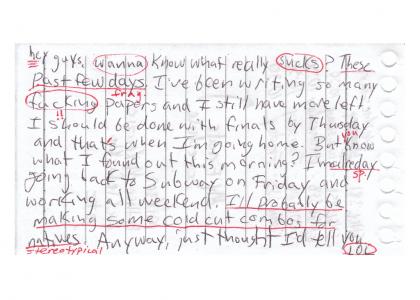 hey guys, wanna know what really sucks? These
Past few days I've been writing so many
frag.
fucking papers and I still have more left!
!!
I should be done with finals by Thursday
you
and that's when I'm going home. But know
what I found out this morning? I'm alreday
sp.
going back to Subway on Friday and
working all weekend. I'll probably be
making some cold cut combos for
natives. Anyway, just thought I'd tell you
stereotypical
LOL